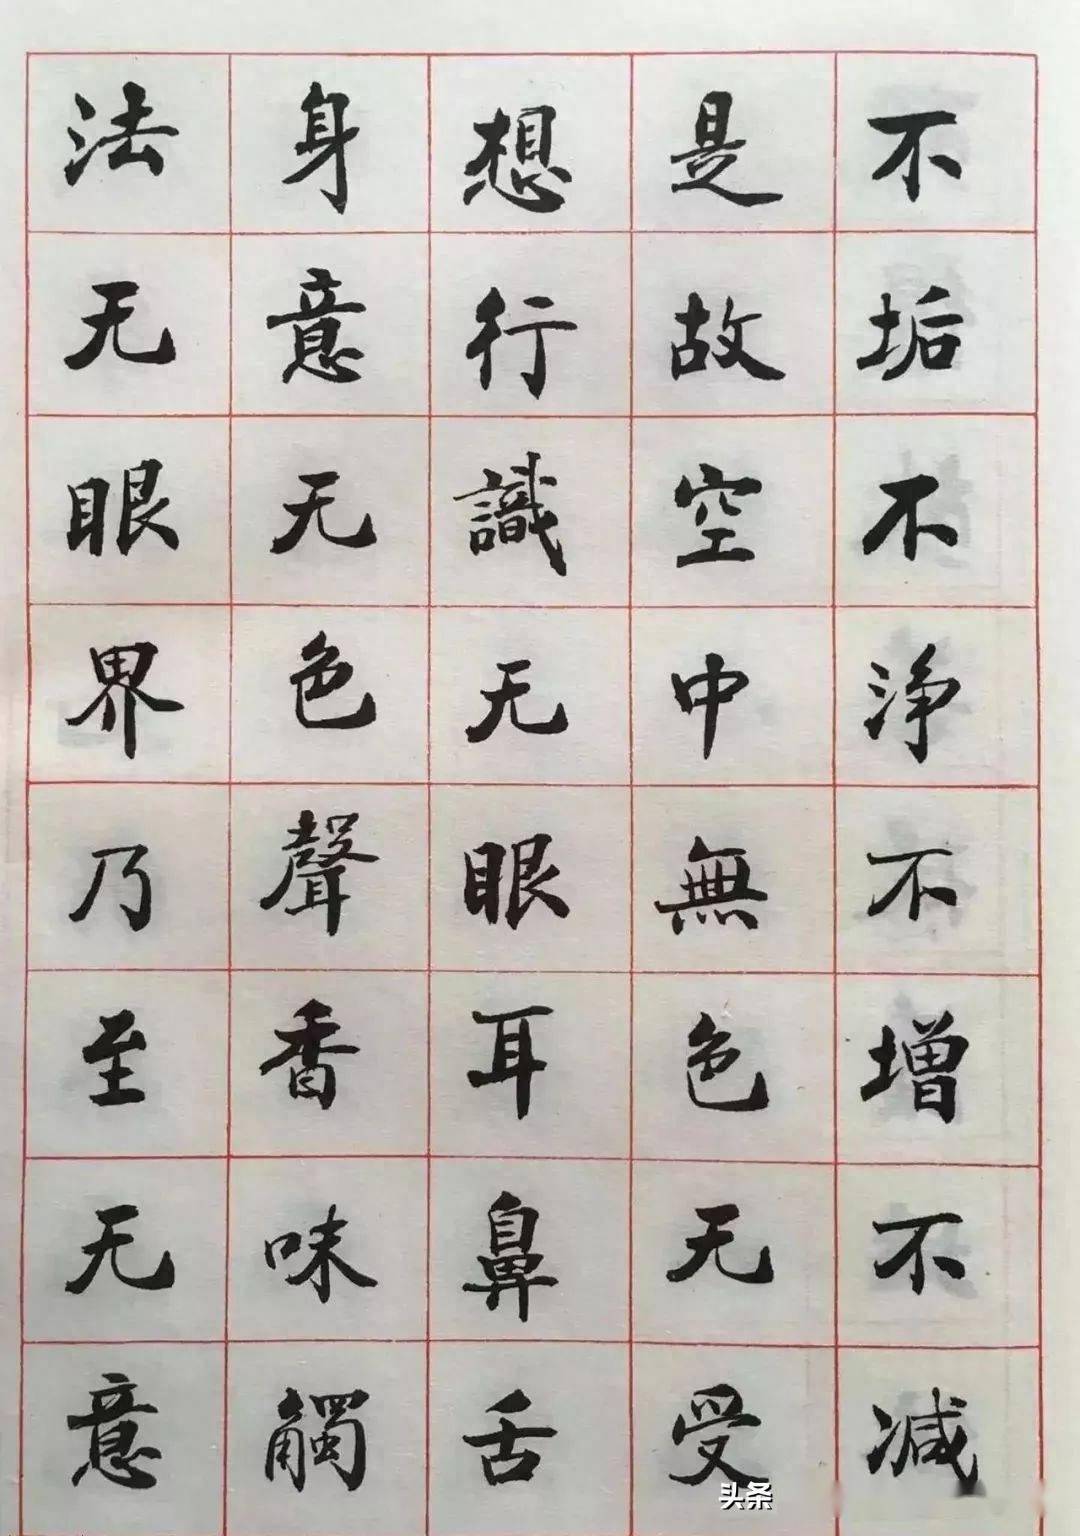 不垢不净不增不减
是故空中無色无受
想行識无眼耳鼻舌
身意无色聲香味觸
法无眼界乃至无意
头条